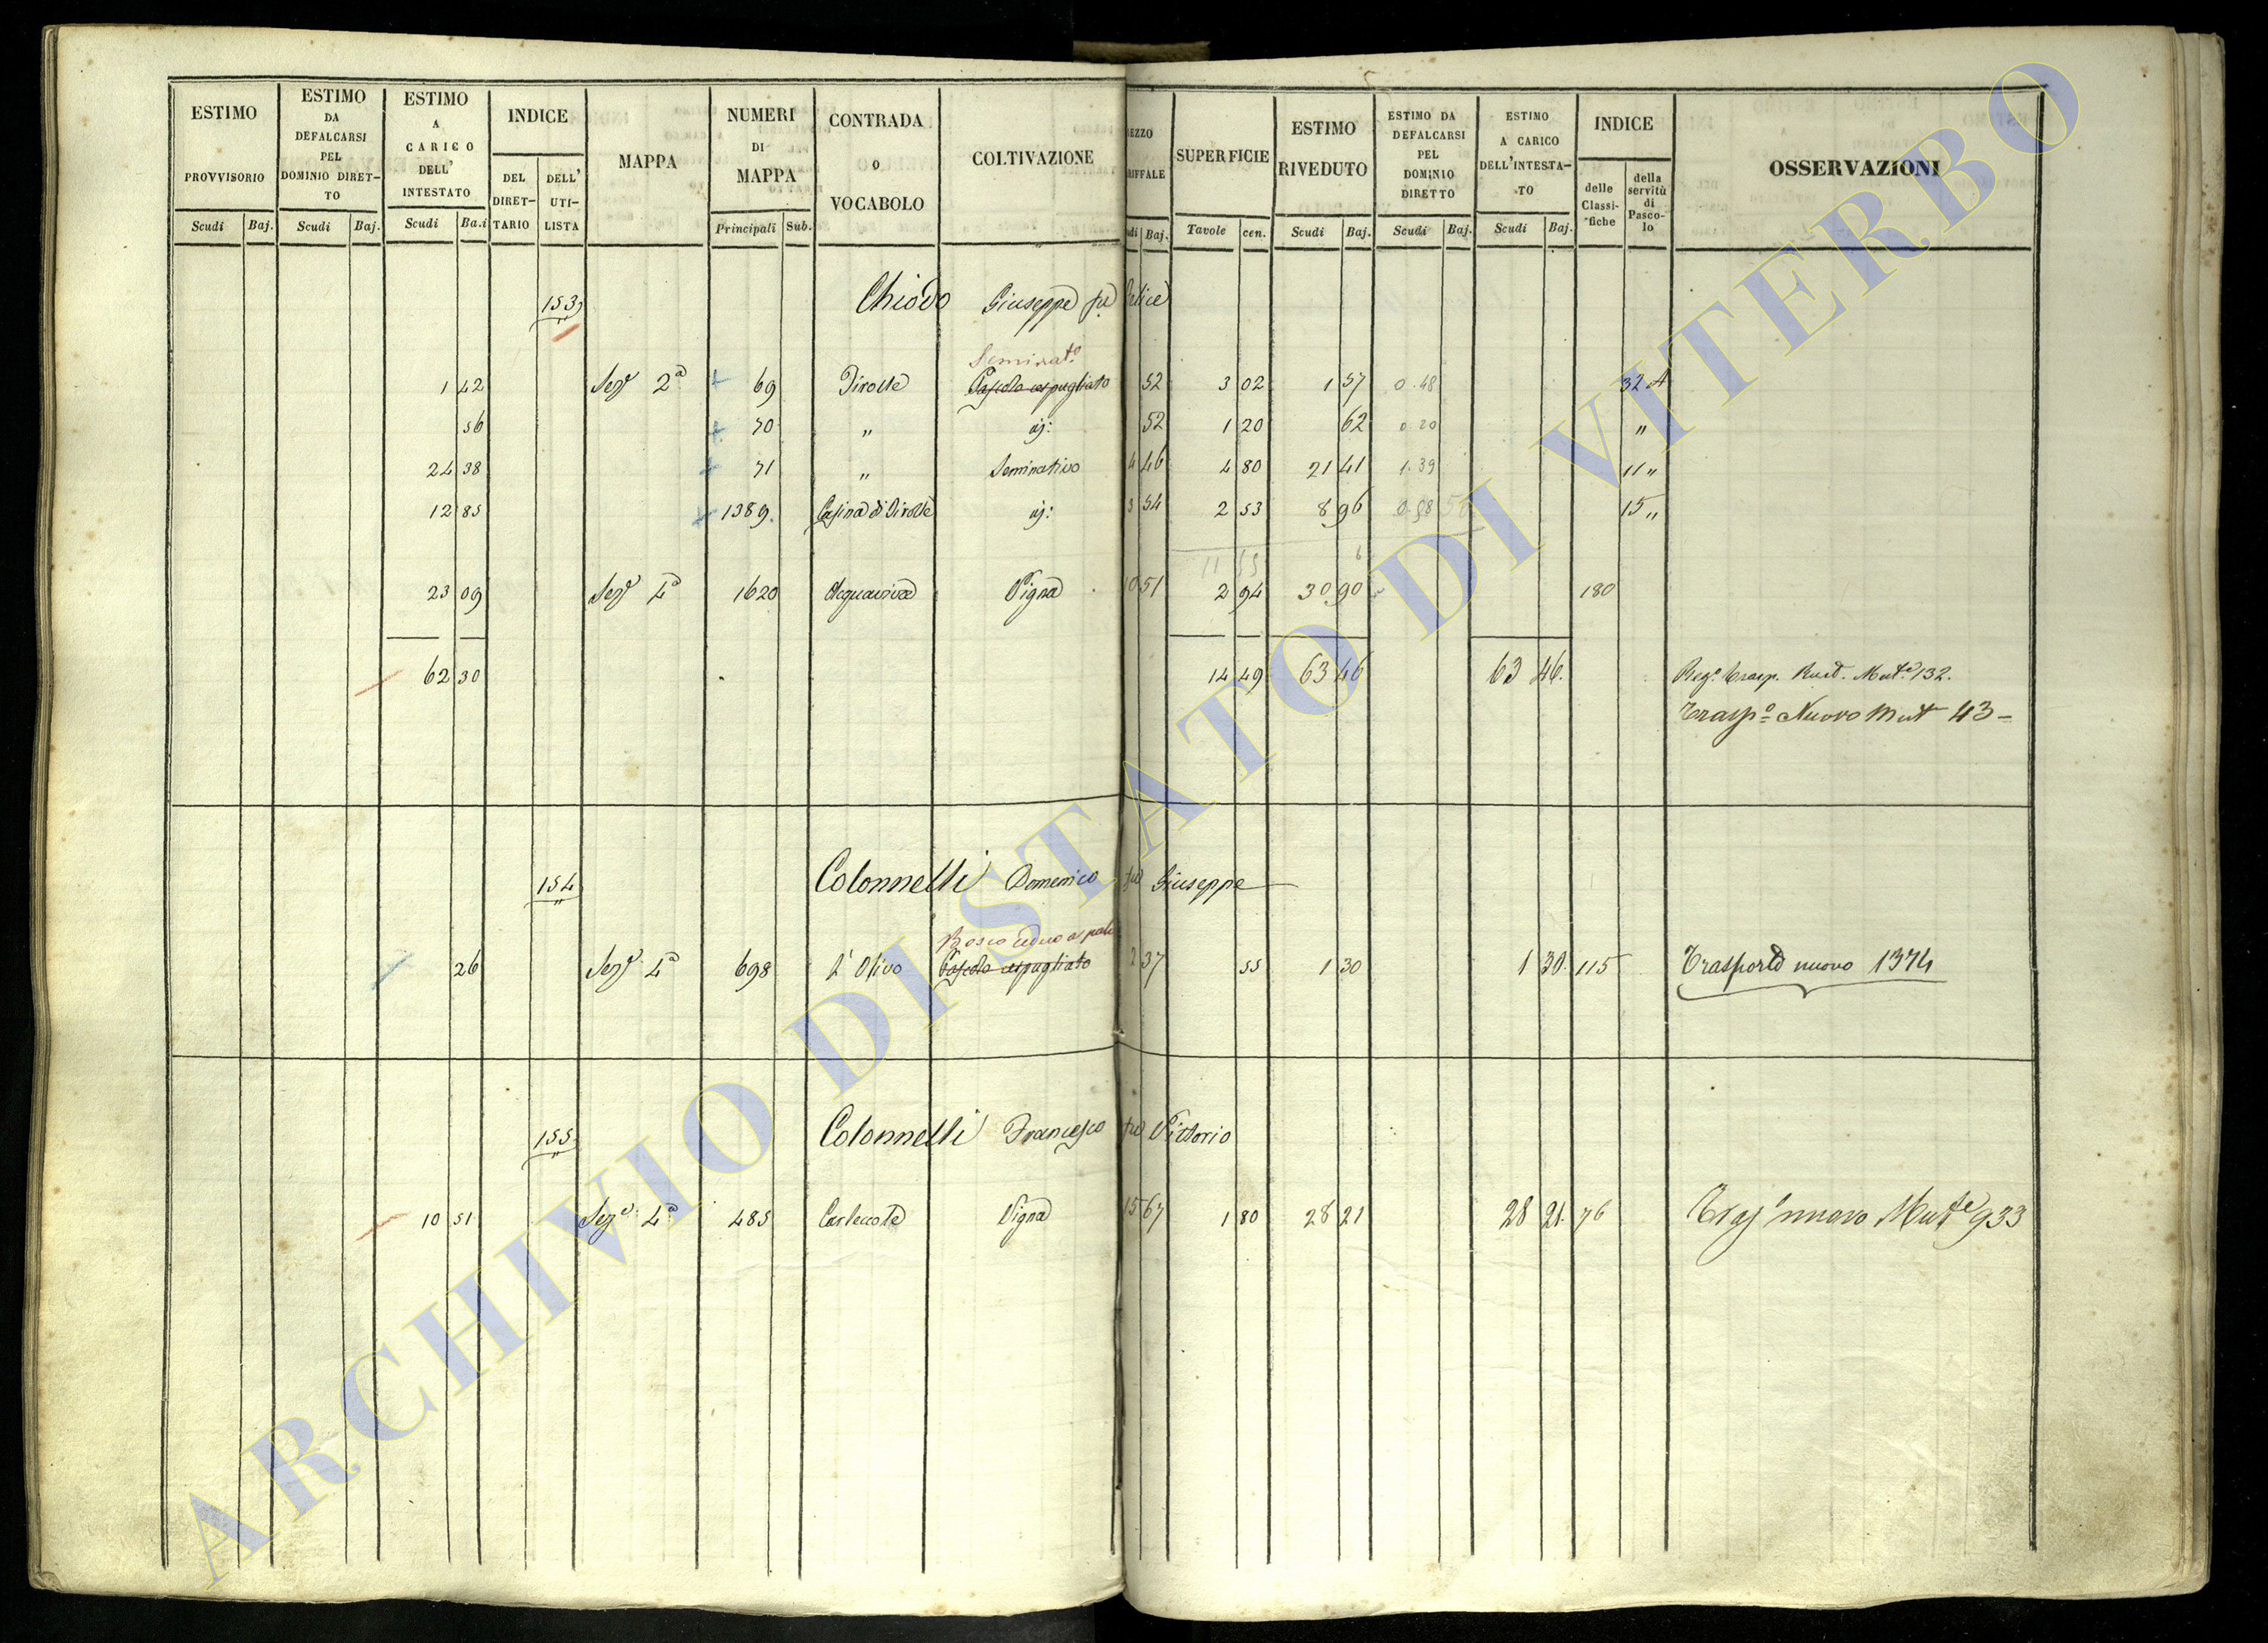 ESTIMO PROVVISORIO Scudi Baj.
ESTIMO DA DEFALCARSI PEL DOMINIO DIRET-TO Scudi Baj.
ESTIMO A CARICO DELL' INTESTATO Scudi Ba.i
INDICE DEL DIRET-TARIO DELL' UTI-LISTA
MAPPA
NUMERI DI MAPPA Principali Sub.
CONTRADA O VOCABOLO
COLTIVAZIONE
EZZO RIFFALE di Baj.
SUPERFICIE Tavole cen.
ESTIMO RIVEDUTO Scudi Baj.
ESTIMO DA DEFALCARSI PEL DOMINIO DIRETTO Scudi Baj.
ESTIMO A CARICO DELL'INTESTA-TO Scudi Baj.
INDICE delle Classi-fiche della servitù di Pasco-lo
OSSERVAZIONI
153 Chiodo Giuseppe fu Felice
Seminat.º
1 42 Sez.e 2ª 69 Pirolle Pascolo cespugliato 52 3 02 1 57 0.48 32 A
56 70 " id: 52 1 20 62 0 20 "
24 38 71 " Seminativo 4 46 4 80 21 41 1.39 11 "
12 85 1389. Casina di Pirolle id: 3 54 2 53 8 96 0.58 15 "
11 55
23 09 Sez.e 4ª 1620 Acquaviva Vigna 10 51 2 94 30 90 180
62 30 14 49 63 46 63 46. Reg.º Trasp. Rust. Mut.e 132.
Trasp.º Nuovo Mut 43 -
154 Colonnelli Domenico fu Giuseppe
Bosco ceduo a pali
26 Sez.e 4ª 698 L'Olivo Pascolo cespugliato 2 37 55 1 30 1 30. 115 Trasporto nuovo 1374
155 Colonnelli Francesco fu Vittorio
10 51 Sez.e 4ª 485 Vigna 15 67 1 80 28 21 28 21. 76 nuovo Mut.e 933
ARCHIVIO DI STATO DI VITERBO